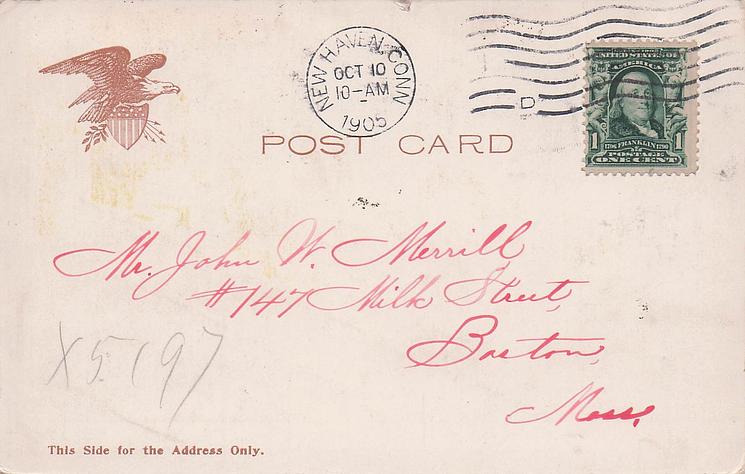 NEW HAVEN, CONN
OCT 10
10-AM
1905
D
UNITED STATES OF
AMERICA
1706 FRANKLIN 1790
1 POSTAGE 1
ONE CENT
POST CARD
Mr. John W. Merrill
#147 Milk Street,
Boston,
Mass.
X5197
This Side for the Address Only.